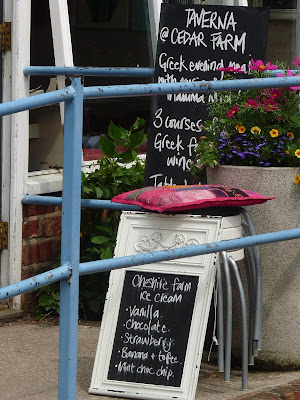 TAVERNA
@ CEDAR FARM
Greek evening meal
with
mamma Mia
3 courses
Greek
wine
Cheshire farm
ice cream
• Vanilla
• Chocolate
• Strawberry
• Banana + toffee
• Mint choc chip.